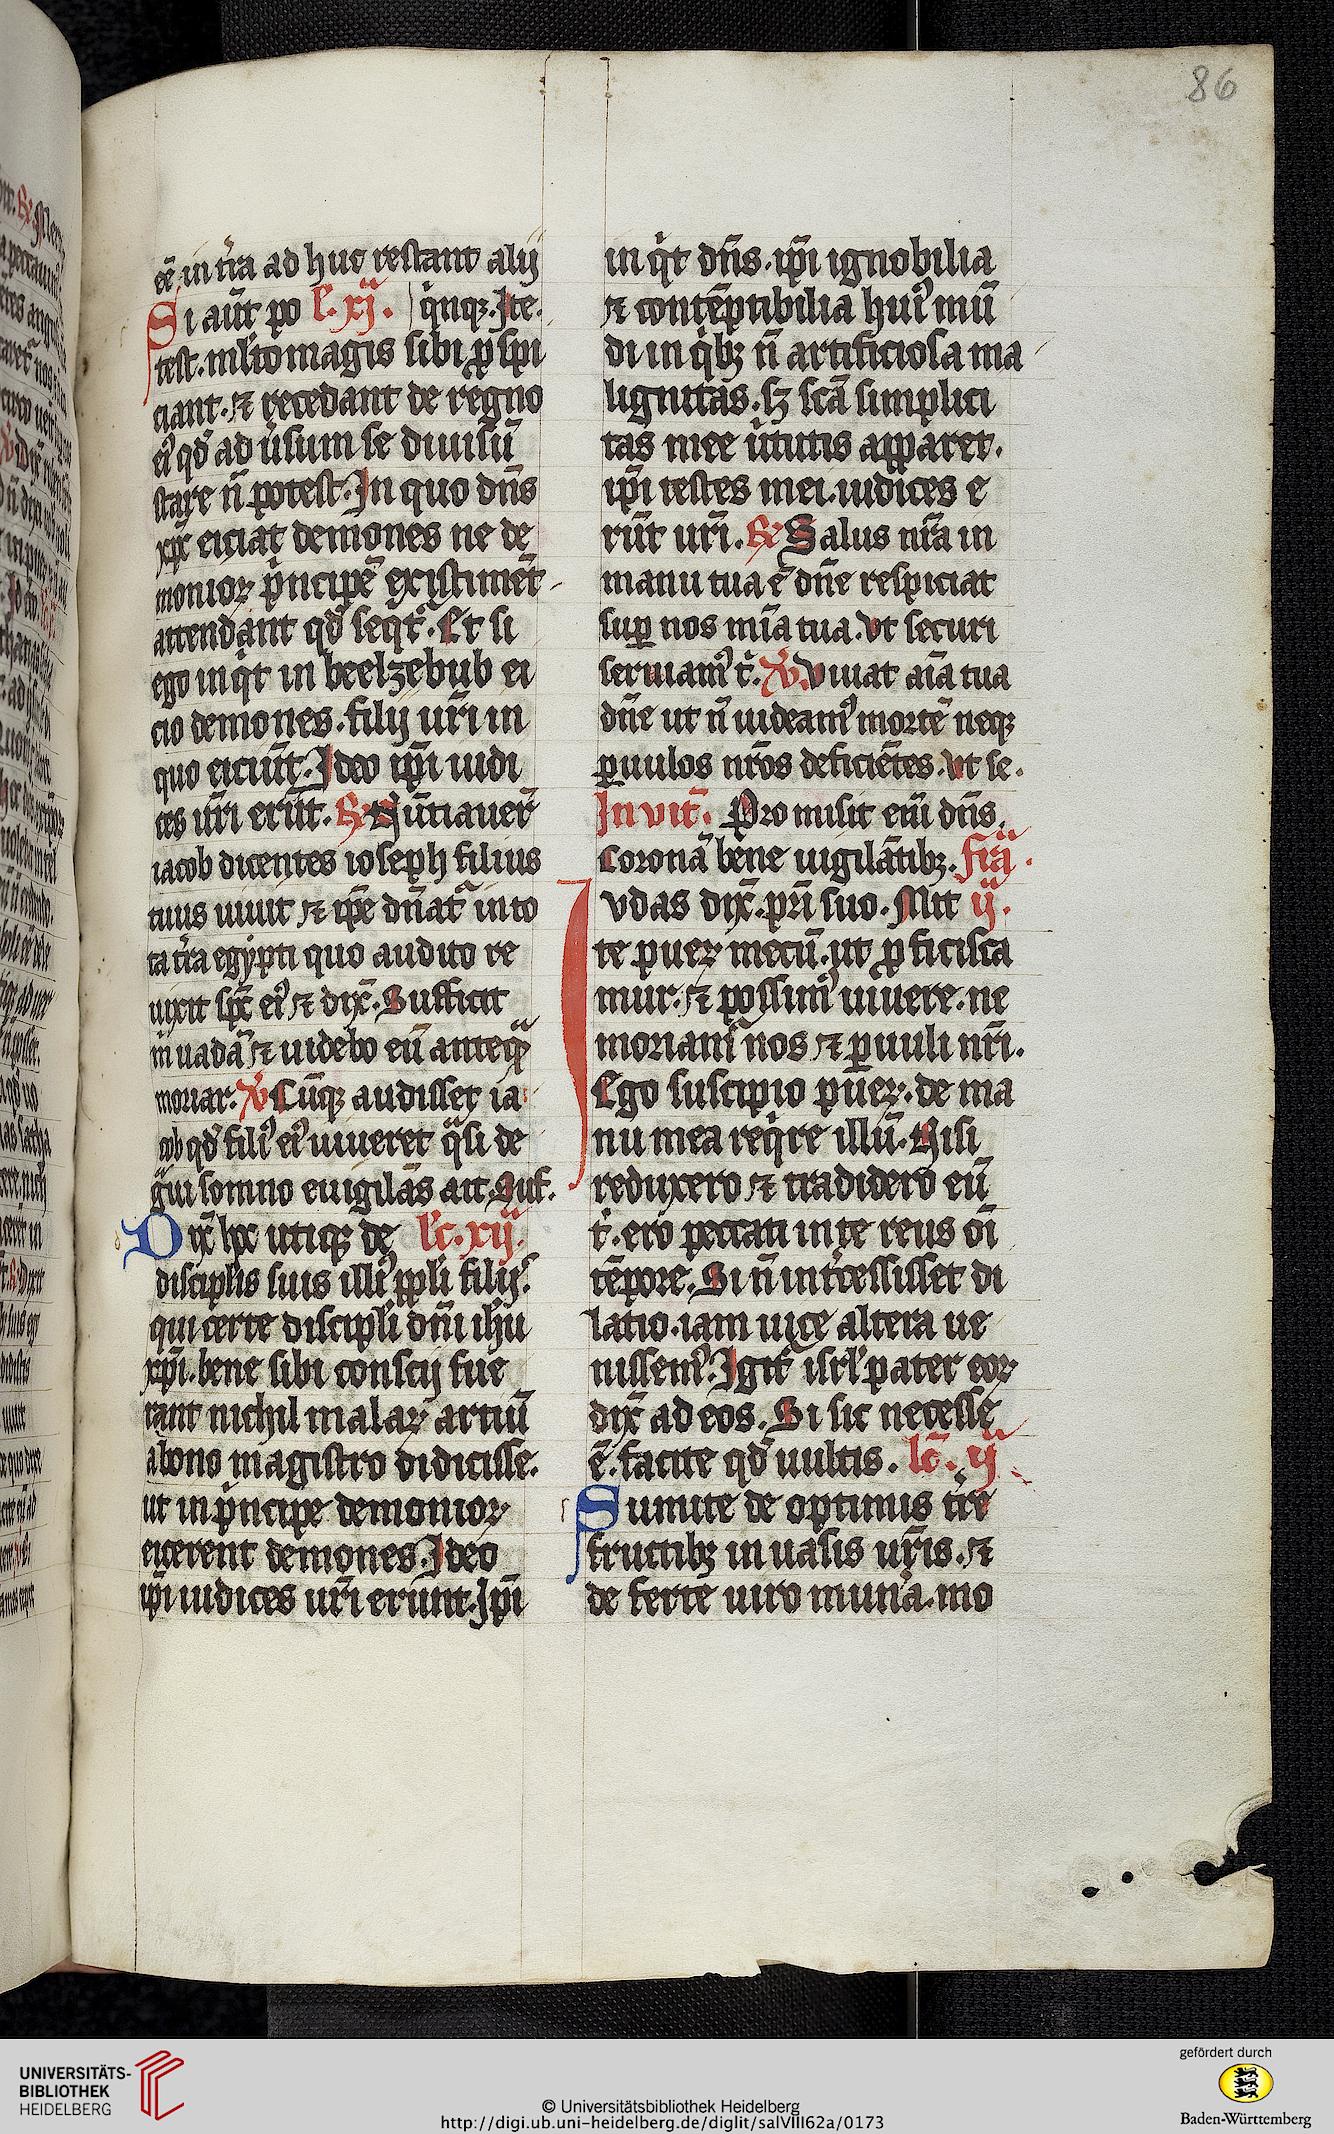 86
eē in t̄ra ad huc restant alij
Si aūt po l̄. xj. q̇nqꝫ. Ite.
test. ml̄to magis sibi ꝑspi
ciant. ⁊ recedant de regno
ei᷒ qd̄ ad ůsum se diuisū
stare n̄ potest. In quo dn̄s
xp̄c eiciat demones ne de
monioꝝ ṗncipē existimēt
attendant qd̄ seqt̄᷑. Et si
ego inq̇t in beelzebub ei
cio demones. filij ur̄i in
quo eiciūt. Ideo ip̄i iudi
ces ur̄i erūt. ℟ Nūtiauer̄
iacob dicentes ioseph filius
tuus uiuit ⁊ ip̄e dn̄at᷑ in to
ta t̄ra egypti quo audito re
uixit sp̄c ei᷒ ⁊ dix̄. Sufficit
m̄ uadā ⁊ uidebo eū anteqᷓ
moriar. ℣ Cūqꝫ audisset ia
cob qd̄ fili᷒ ei᷒ uiueret qᷓsi de
gᷓui somno euigilās ait. Suf.
Dix̄ hec utiqꝫ de lc̄. xij.
discipl̄is suis illi᷒ ppl̄i filijs.
qui certe discipl̄i dn̄i ih̄u
xp̄i. bene sibi conscij fue
rant nichil malaꝝ artiū
a bono magistro didicisse.
ut in ṗncipe demonioꝝ
eicerent demones. Ideo
ip̄i iudices ur̄i erunt. Ip̄i
inq̇t dn̄s. ip̄i ignobilia
⁊ contēptibilia hui᷒ mū
di in q̇bꝫ n̄ artificiosa ma
lignitas. sꝫ sc̄a simplici
tas mee ůtutis apparet.
ip̄i testes mei. iudices e
rūt ur̄i. ℟ Salus nr̄a in
manu tua ē dn̄e respiciat
suꝑ nos mīa tua. vt securi
seruiam᷒ t̄. ℣ Viuat aīa tua
dn̄e ut n̄ uideam᷒ mortē neqꝫ
ꝑuulos nr̄os deficiētes. vt se.
Inuit̄. Pro misit eni᷒ dn̄s.
Coronā bene uigilātibꝫ. fr̄ia.
Ivdas dix̄. pr̄i suo. Mit ij.
te pueꝝ mecū. ut ꝓficisca
mur. ⁊ possim᷒ uiuere. ne
moriam᷒ nos ⁊ ꝑuuli nr̄i.
Ego suscipio pueꝝ. de ma
nu mea req̇re illū. Nisi
reduxero ⁊ tradidero eū
t̄. ero peccati in te reus oī
tēpore. Si n̄ int̄cessisset di
latio. iam uice altera ue
nissem᷒. Igit᷑ isrl̄ pater eoꝝ
dix̄ ad eos. Si sic necesse
ē. facite qd̄ uultis. lc̄. ij.
Sumite de optimis t̄re
fructibꝫ in uasis ur̄is. ⁊
de ferte uiro mun̄a. mo
UNIVERSITÄTS-
BIBLIOTHEK
HEIDELBERG
© Universitätsbibliothek Heidelberg
http://digi.ub.uni-heidelberg.de/diglit/salVIII62a/0173
gefördert durch
Baden-Württemberg